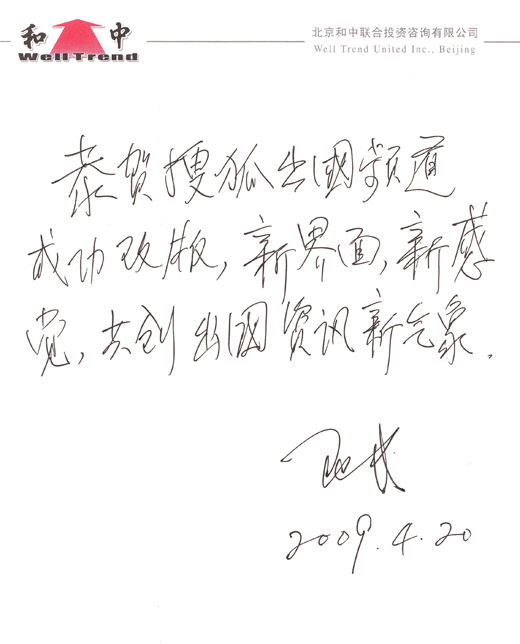 和中
Well Trend
北京和中联合投资咨询有限公司
Well Trend United Inc., Beijing
恭贺搜狐出国频道
成功改版,新界面,新感
觉,共创出国资讯新气象.
2009.4.20